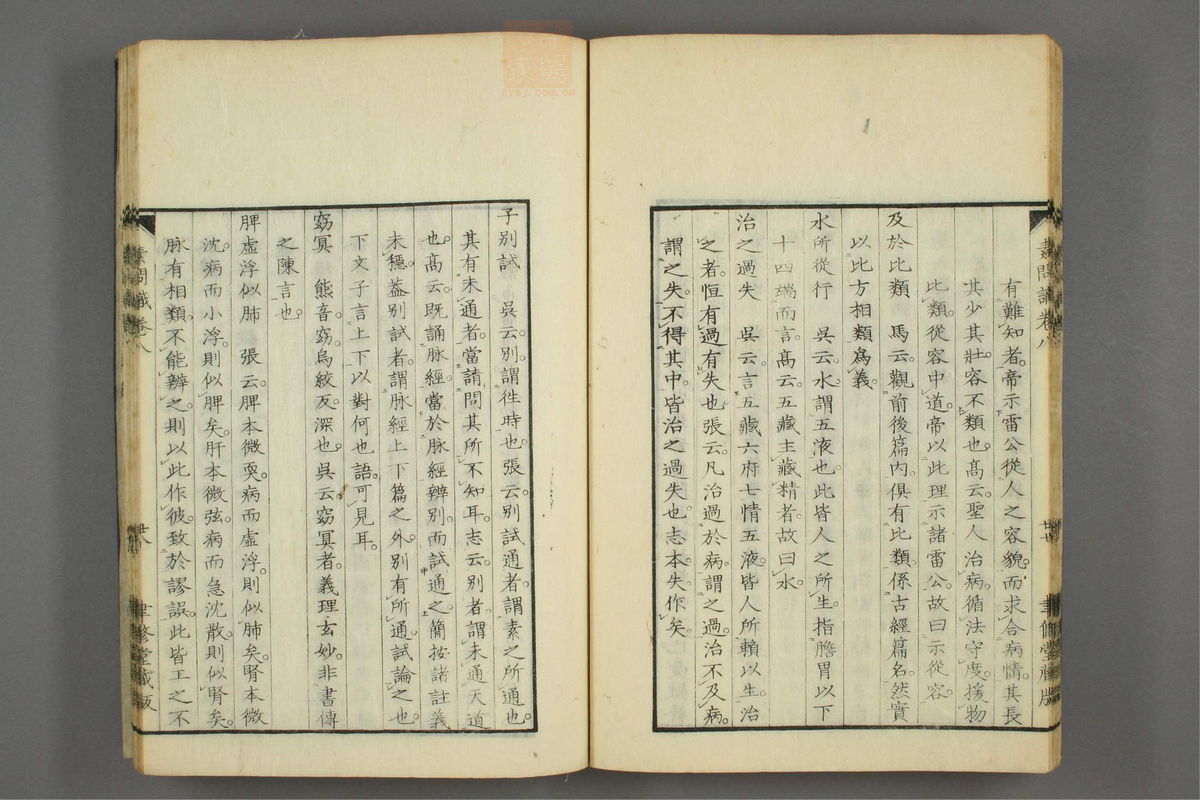 有難知者帝示雷公從人之容貌而求合病情其長
其少其壯容不類也髙云聖人治病循法守度援物
比類從容中道帝以此理示諸雷公故曰示從容
及於比類　馬云觀前後篇内俱有比類係古經篇名然實
以比方相類爲義
水所從行　吳云水謂五液也此皆人之所生指膽胃以下
十四端而言髙云五藏主藏精者故曰水
治之過失　吳云言五藏六府七情五液皆人所賴以生治
之者恒有過有失也張云凡治過於病謂之過治不及病
謂之失不得其中皆治之過失也志本失作矣
素問識卷八
聿修堂藏版
子別試　吳云別謂徃時也張云別試通者謂素之所通也
其有未通者當請問其所不知耳志云別者謂未通天道
也髙云既誦脉經當於脉經辨別而試通之簡按諸註義
未穩葢別試者謂脉經上下篇之外別有所通試論之也
下文子言上下以對何也語可見耳
窈冥　熊音窈烏絞反深也吳云窈冥者義理玄妙非書傳
之陳言也
脾虛浮似肺　張云脾本微耎病而虛浮則似肺矣腎本微
沈病而小浮則似脾矣肝本微弦病而急沈散則似腎矣
脉有相類不能辨之則以此作彼致於謬誤此皆工之不
素問識卷八
聿修堂藏版
zysj.com.cn